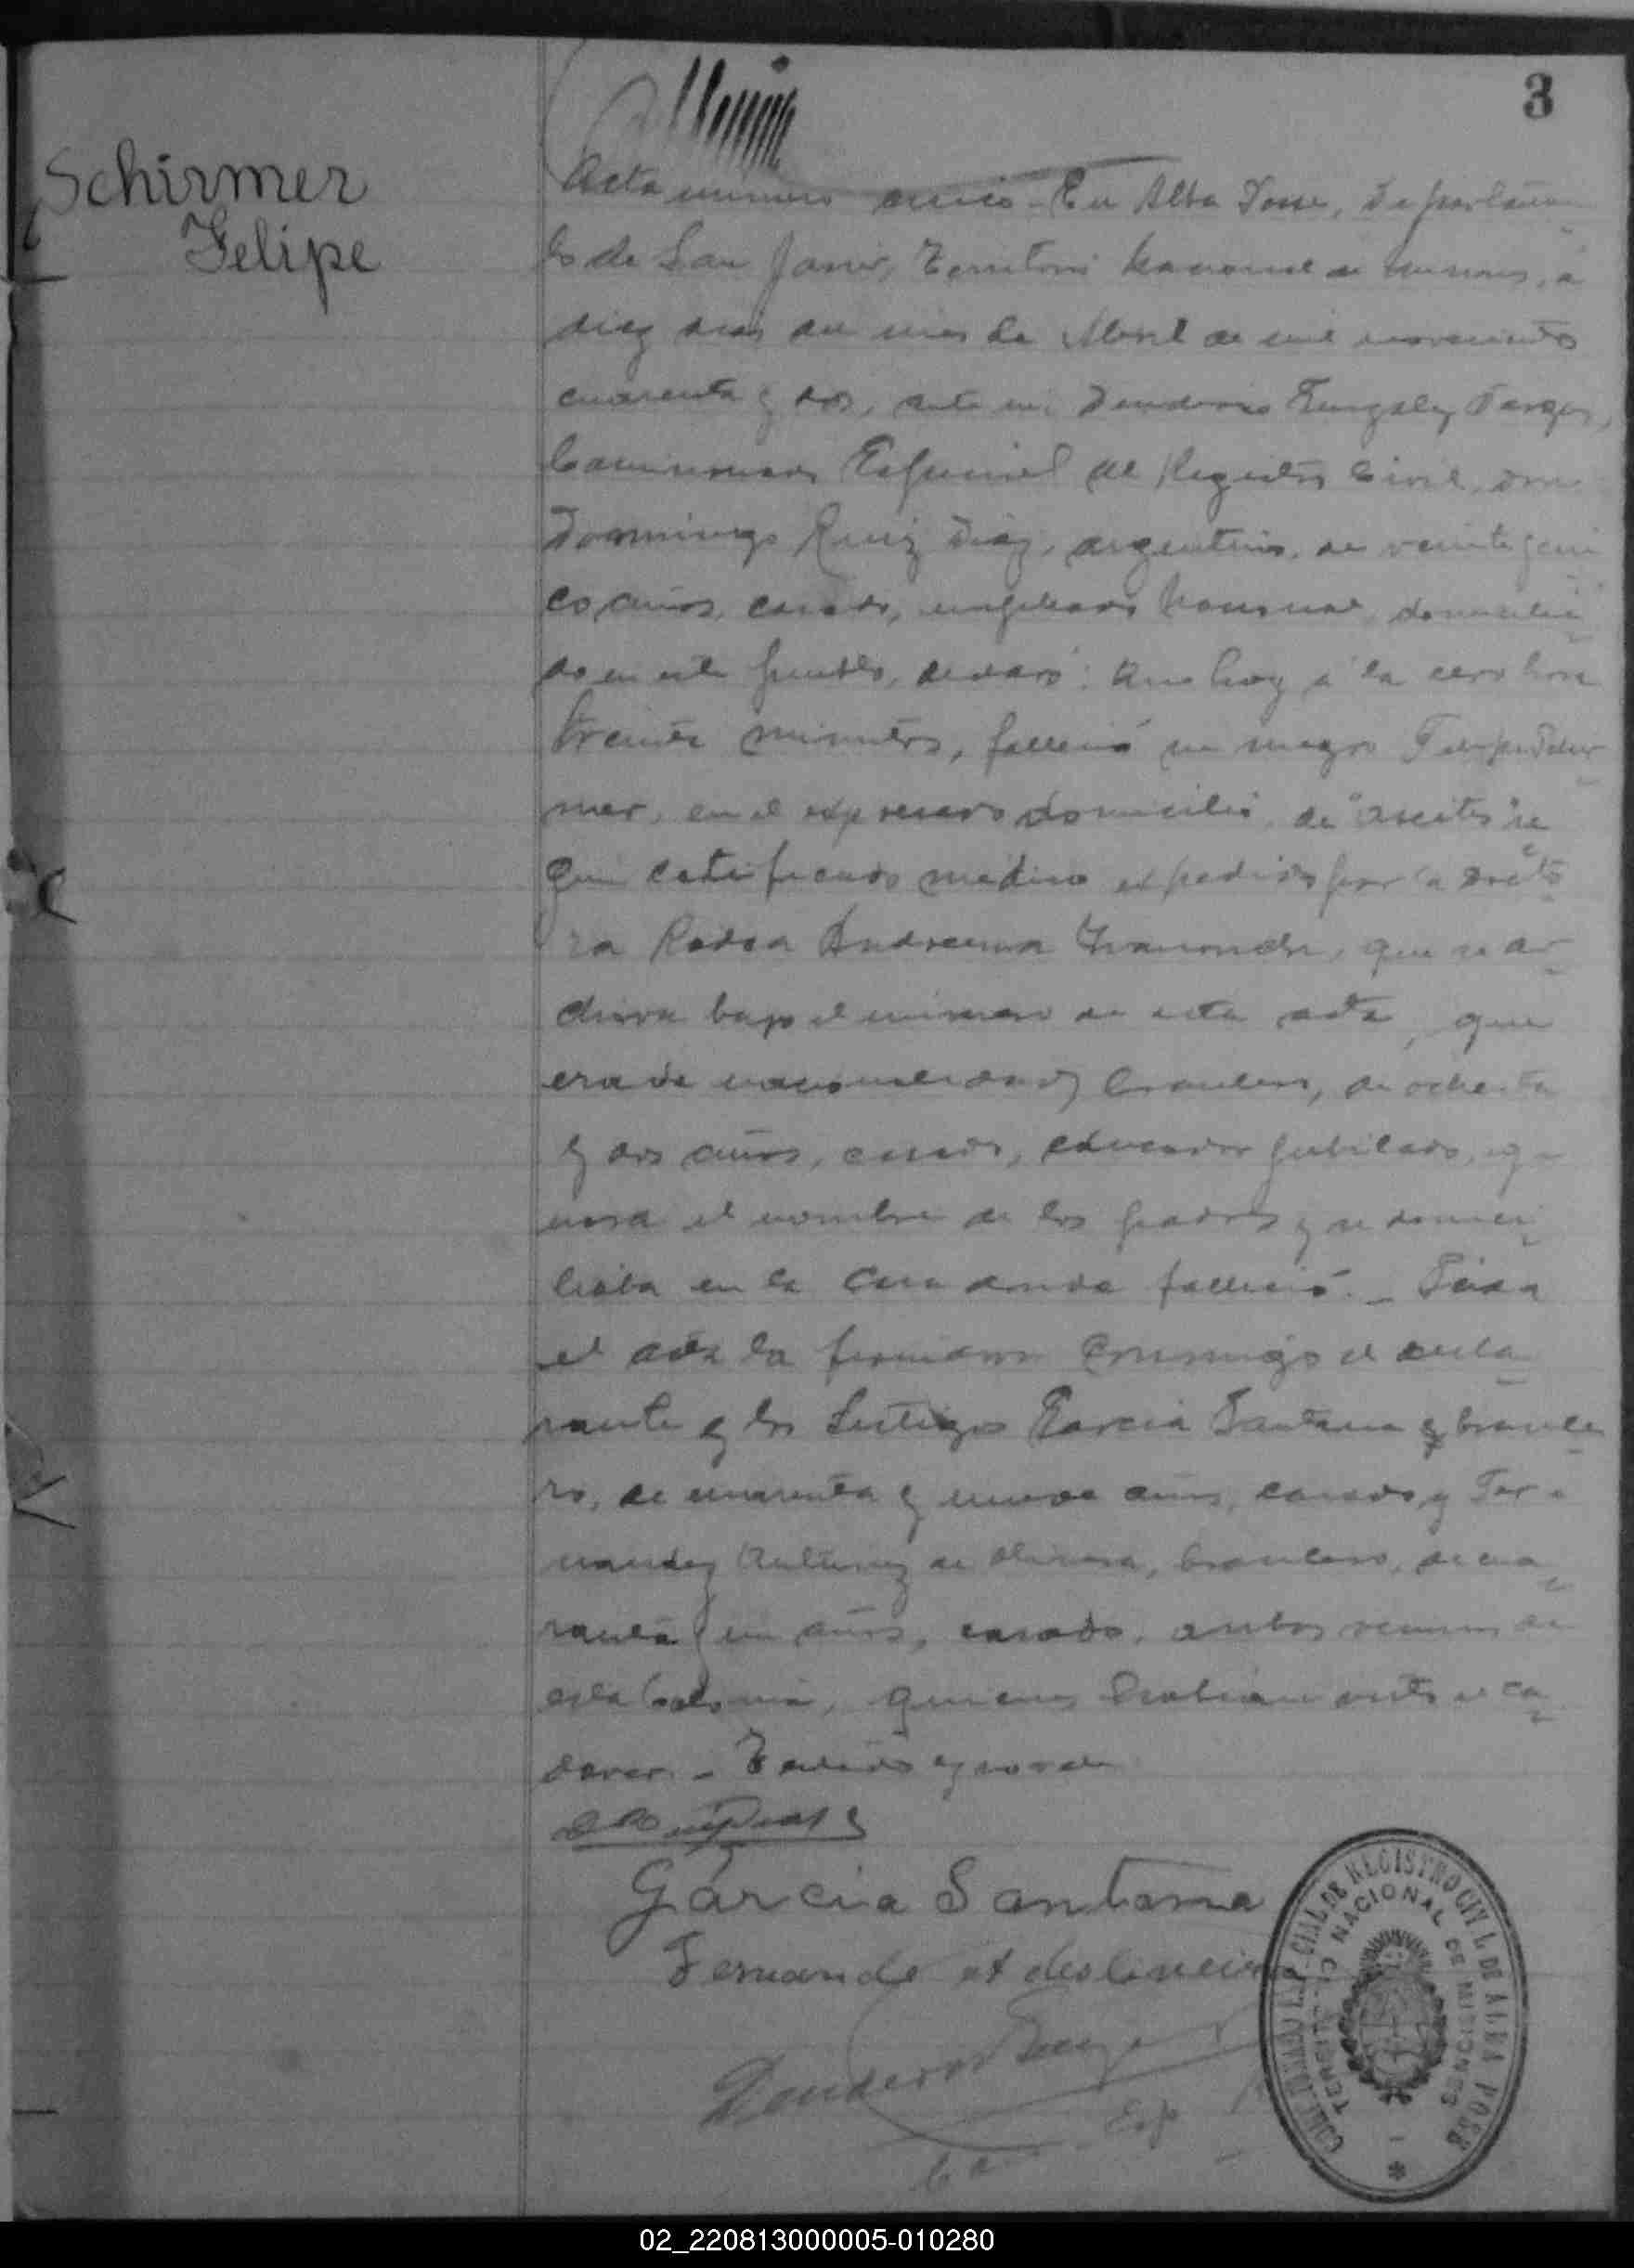 3
Schirmer
Felipe
Acta numero cinco - En Alba Posse, Departamen
to de San Javier, Territorio Nacional de Misiones, a
diez dias del mes de Abril de mil novecientos
cuarenta y dos, ante mi
Comisionado Especial del Registro Civil, don
Domingo Ruiz Diaz, argentino, de veinte y cin
co años, casado, empleado Nacional, domicilia
do en este pueblo, declaró: Que hoy a la cero hora
treinta minutos, falleció su suegro Felipe Schir
mer, en el expresado domicilio, de "ascitis" se
gun certificado medico expedido por la docto
ra que se ar
chiva bajo el numero de esta acta, que
era de nacionalidad brasilero, de ochenta
y dos años, casado, educador jubilado, ig
nora el nombre de los padres y se domici
liaba en la casa donde falleció. - Leida
el acta la firmaron conmigo el decla
rante y los testigos Garcia Santana brasile
ro, de cuarenta y nueve años, casado, y Fer
nandez de Oliveira, brasilero, de cua
renta y un años, casado, ambos vecinos de
esta Colonia, quienes habian visto el ca
daver. -
Garcia Santana
Fernande
Esp
REGISTRO CIVIL DE ALBA POSSE
TERRITORIO NACIONAL DE MISIONES
02_220813000005-010280